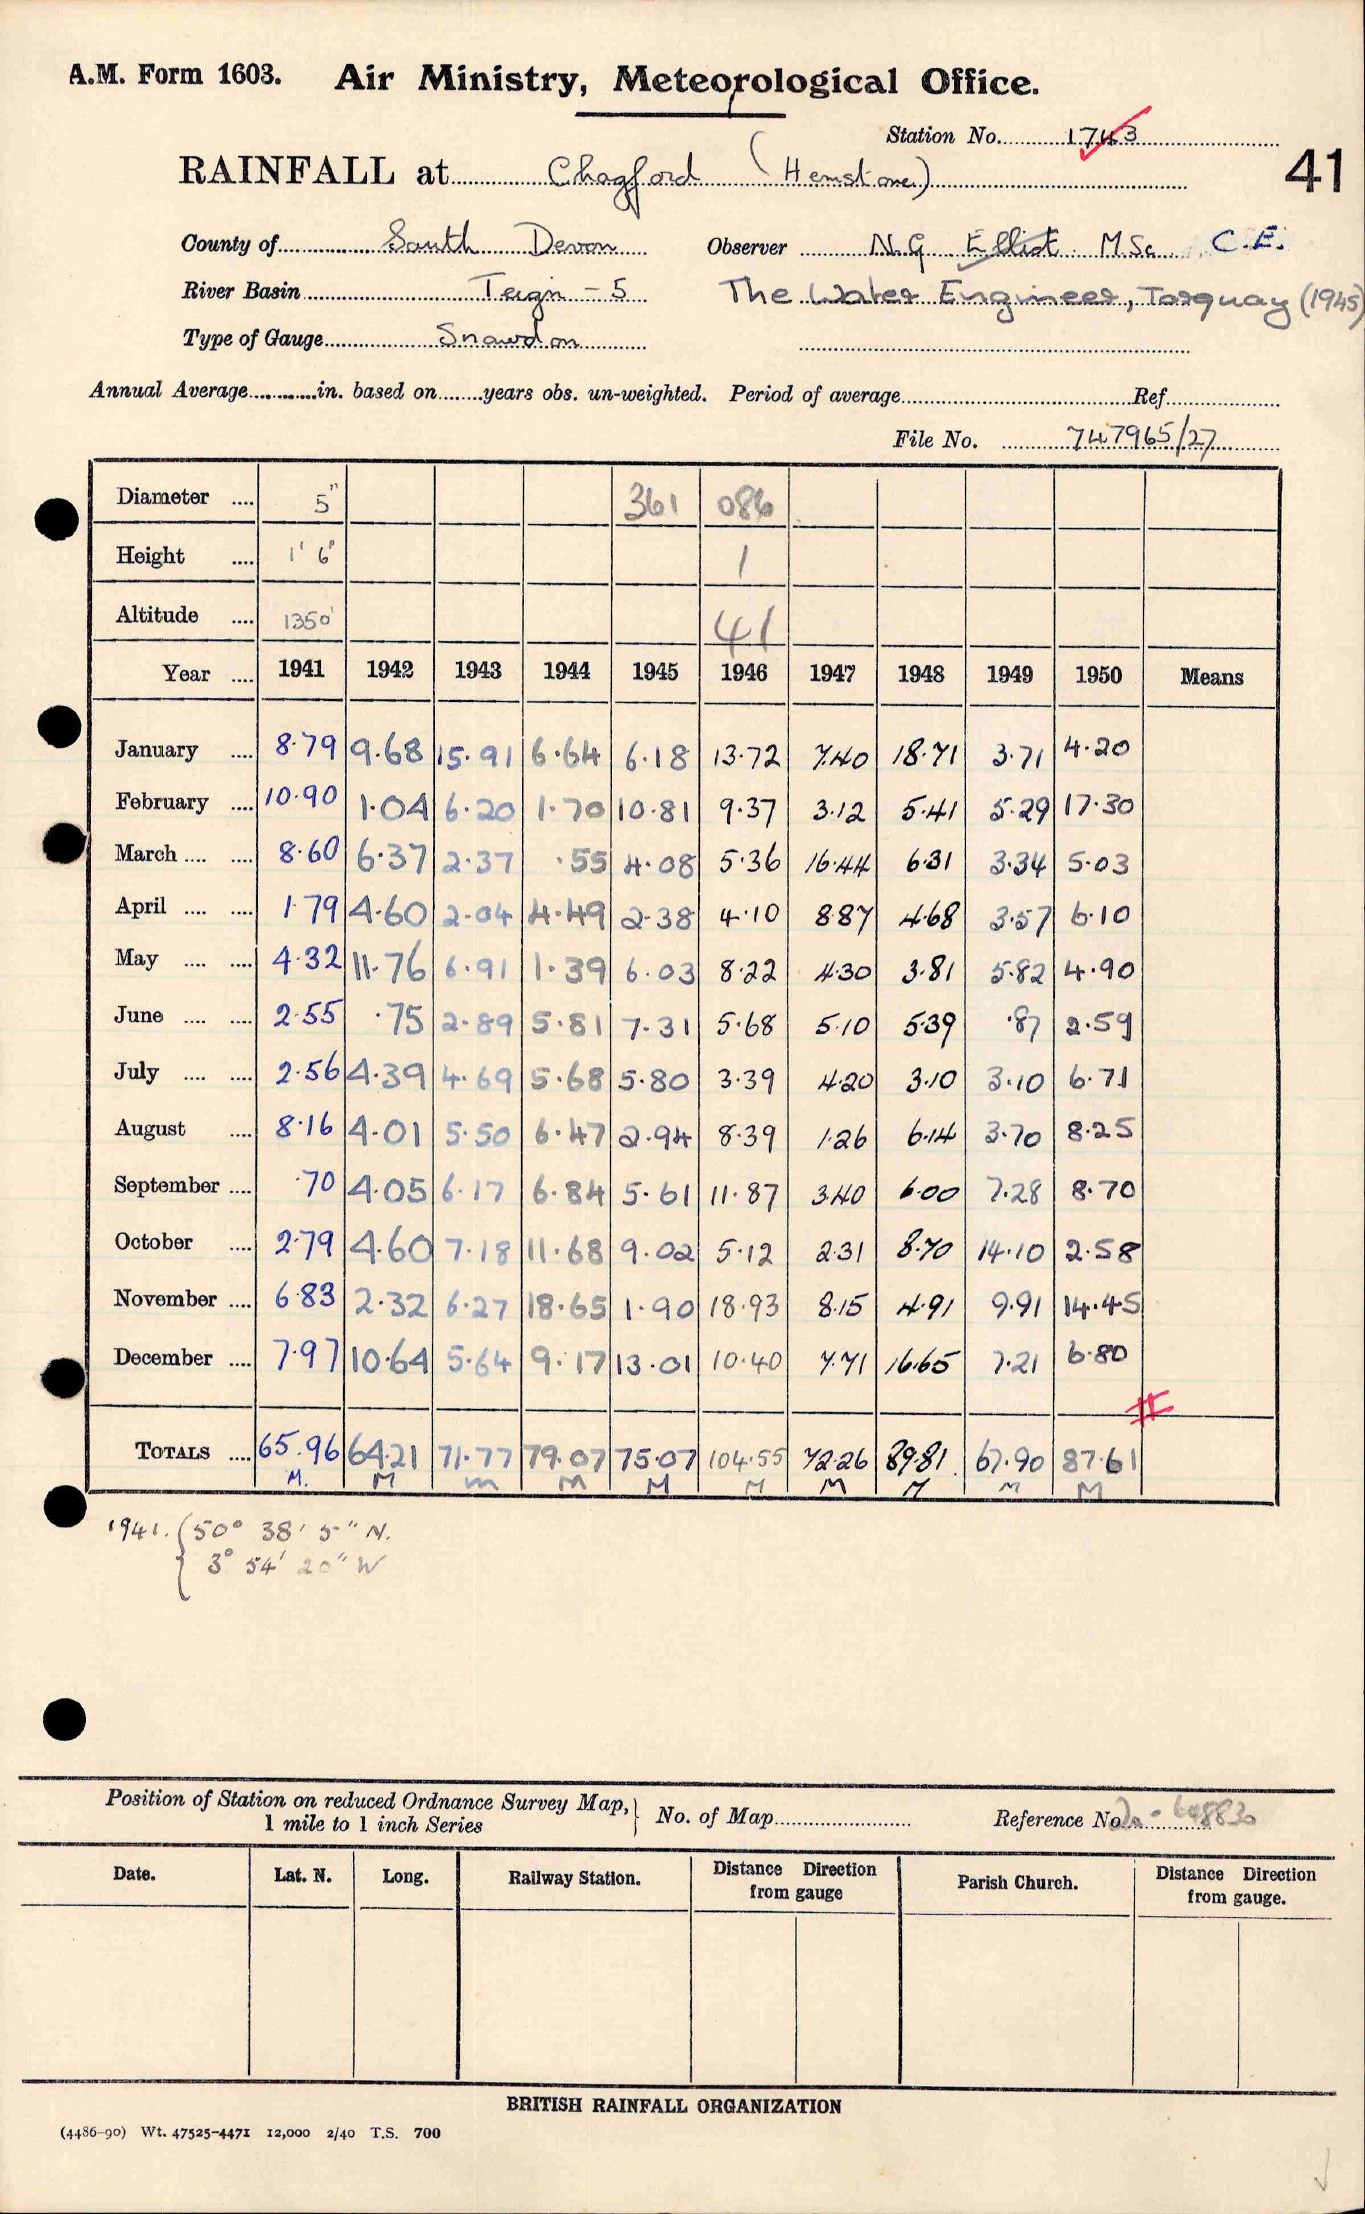 A.M. Form 1603. Air Ministry, Meteorological Office.
Station No. 1743
41
RAINFALL at Chagford (Hemstone)
County of South Devon Observer N.G. Elliot M.Sc. C.E.
River Basin Teign - 5 The Water Engineer, Torquay (1945)
Type of Gauge Snowdon
Annual Average in. based on years obs. un-weighted. Period of average Ref
File No. 747965/27
Diameter .... 5" 361 086
Height .... 1' 6" 1
Altitude .... 1350' 41
Year .... 1941 1942 1943 1944 1945 1946 1947 1948 1949 1950 Means
January .... 8.79 9.68 15.91 6.64 6.18 13.72 7.40 18.71 3.71 4.20
February .... 10.90 1.04 6.20 1.70 10.81 9.37 3.12 5.41 5.29 17.30
March .... .... 8.60 6.37 2.37 .55 4.08 5.36 16.44 6.31 3.34 5.03
April .... .... 1.79 4.60 2.04 4.49 2.38 4.10 8.87 4.68 3.57 6.10
May .... .... 4.32 11.76 6.91 1.39 6.03 8.22 4.30 3.81 5.82 4.90
June .... .... 2.55 .75 2.89 5.81 7.31 5.68 5.10 5.39 .87 2.59
July .... .... 2.56 4.39 4.69 5.68 5.80 3.39 4.20 3.10 3.10 6.71
August .... 8.16 4.01 5.50 6.47 2.94 8.39 1.26 6.14 3.70 8.25
September .... .70 4.05 6.17 6.84 5.61 11.87 3.40 6.00 7.28 8.70
October .... 2.79 4.60 7.18 11.68 9.02 5.12 2.31 8.70 14.10 2.58
November .... 6.83 2.32 6.27 18.65 1.90 18.93 8.15 4.91 9.91 14.45
December .... 7.97 10.64 5.64 9.17 13.01 10.40 7.71 16.65 7.21 6.80
TOTALS .... 65.96 64.21 71.77 79.07 75.07 104.55 72.26 89.81 67.90 87.61
M. M M M M M M M M M
1941. { 50° 38' 5" N.
3° 54' 20" W
Position of Station on reduced Ordnance Survey Map, } No. of Map Reference No.
1 mile to 1 inch Series
Date. Lat. N. Long. Railway Station. Distance Direction from gauge Parish Church. Distance Direction from gauge.
BRITISH RAINFALL ORGANIZATION
(4486-90) Wt. 47525-4471 12,000 2/40 T.S. 700